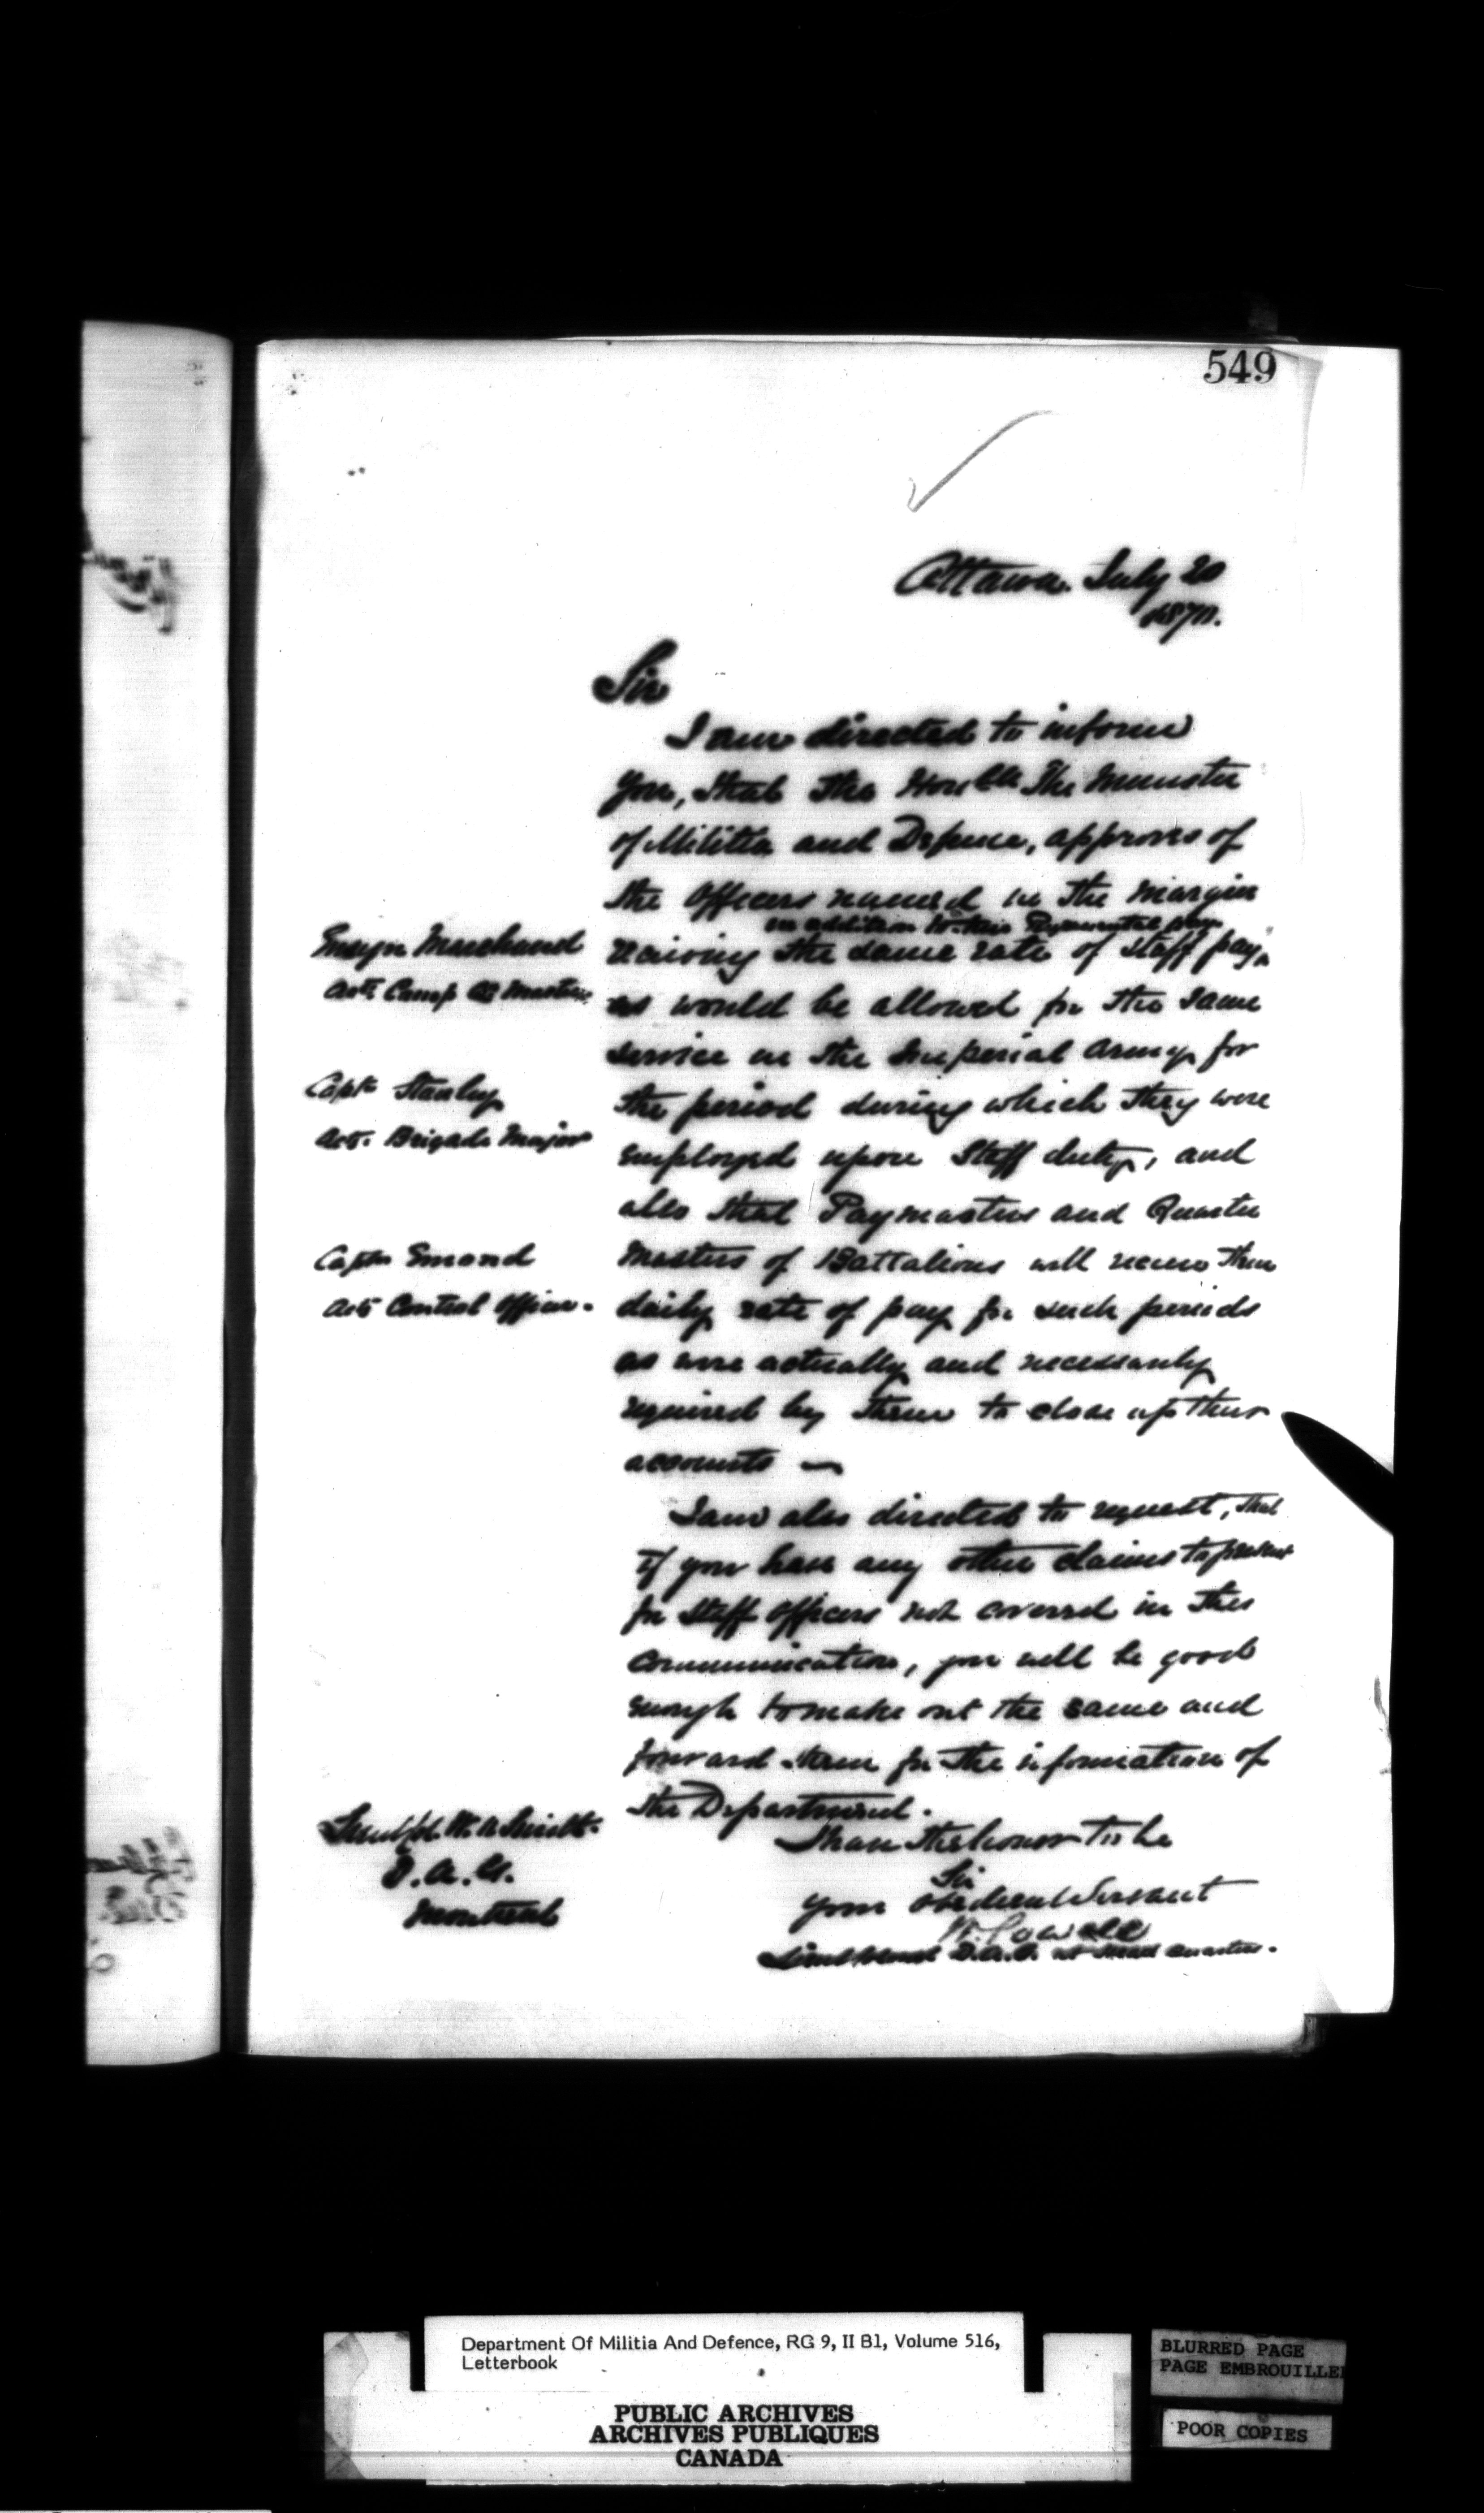 549
Ottawa. July 20
1870.
Sir
I am directed to inform
you, that the Honble The Minister
of Militia and Defence, approves of
the Officers named in the margin
in addition to their Regimental pay
receiving the same rate of Staff pay,
as would be allowed for the same
service in the Imperial Army, for
the period during which they were
employed upon Staff duty, and
also that Paymasters and Quarter
Masters of Battalions will receive their
daily rate of pay for such periods
as were actually and necessarily
required by them to close up their
accounts —
I am also directed to request, that
if you have any other claims to present
for Staff Officers not covered in this
communication, you will be good
enough to make out the same and
forward them for the information of
the Department.
I have the honor to be
Sir
your obedient Servant
W. Powell
Lieut Colonel D.A.G. at Head Quarters.
Ensign Marchand
Actg Camp Qr Master
Captn Stanley
Act. Brigade Major
Captn Emond
Act Control Officer.
Lieut Col W. O Smith.
D.A.G.
Montreal
Department Of Militia And Defence, RG 9, II B1, Volume 516,
Letterbook
PUBLIC ARCHIVES
ARCHIVES PUBLIQUES
CANADA
BLURRED PAGE
PAGE EMBROUILLE
POOR COPIES